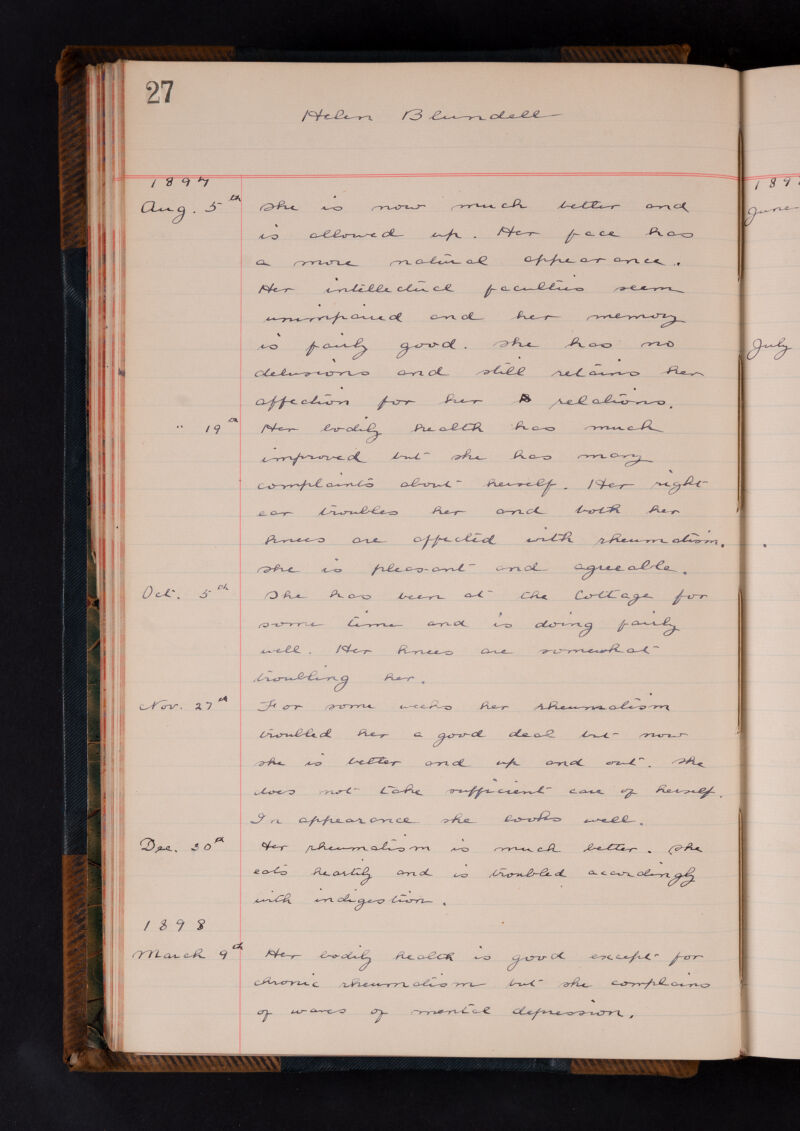 27
Helen Blundell
1897
Aug. 5th She is now much better and
is allowed up. Her face has
a more natural appearance.
Her intellectual faculties seem
unimpaired and her memory
is fairly good. She has no
delusions and still retains her
affection for her relations.
" 19th Her bodily health has much
improved but she has many
complaints about herself. Her right
ear troubles her and both her
knees are affected with rheumatism.
She is pleasant and agreeable.
Oct. 5th She has been at the Cottage for
some time and is doing fairly
well. Her knees are somewhat
troubling her.
Nov. 27th For some weeks her rheumatism
troubled her a good deal but now
she is better and up and out. She
does not take sufficient care of herself.
In appearance she looks well.
Dec. 30th Her rheumatism is much better. She
eats heartily and is troubled accordingly
with indigestion.
1898
March 9th Her bodily health is good except for
chronic rheumatism but she complains
of waves of mental depression.
189
June
July